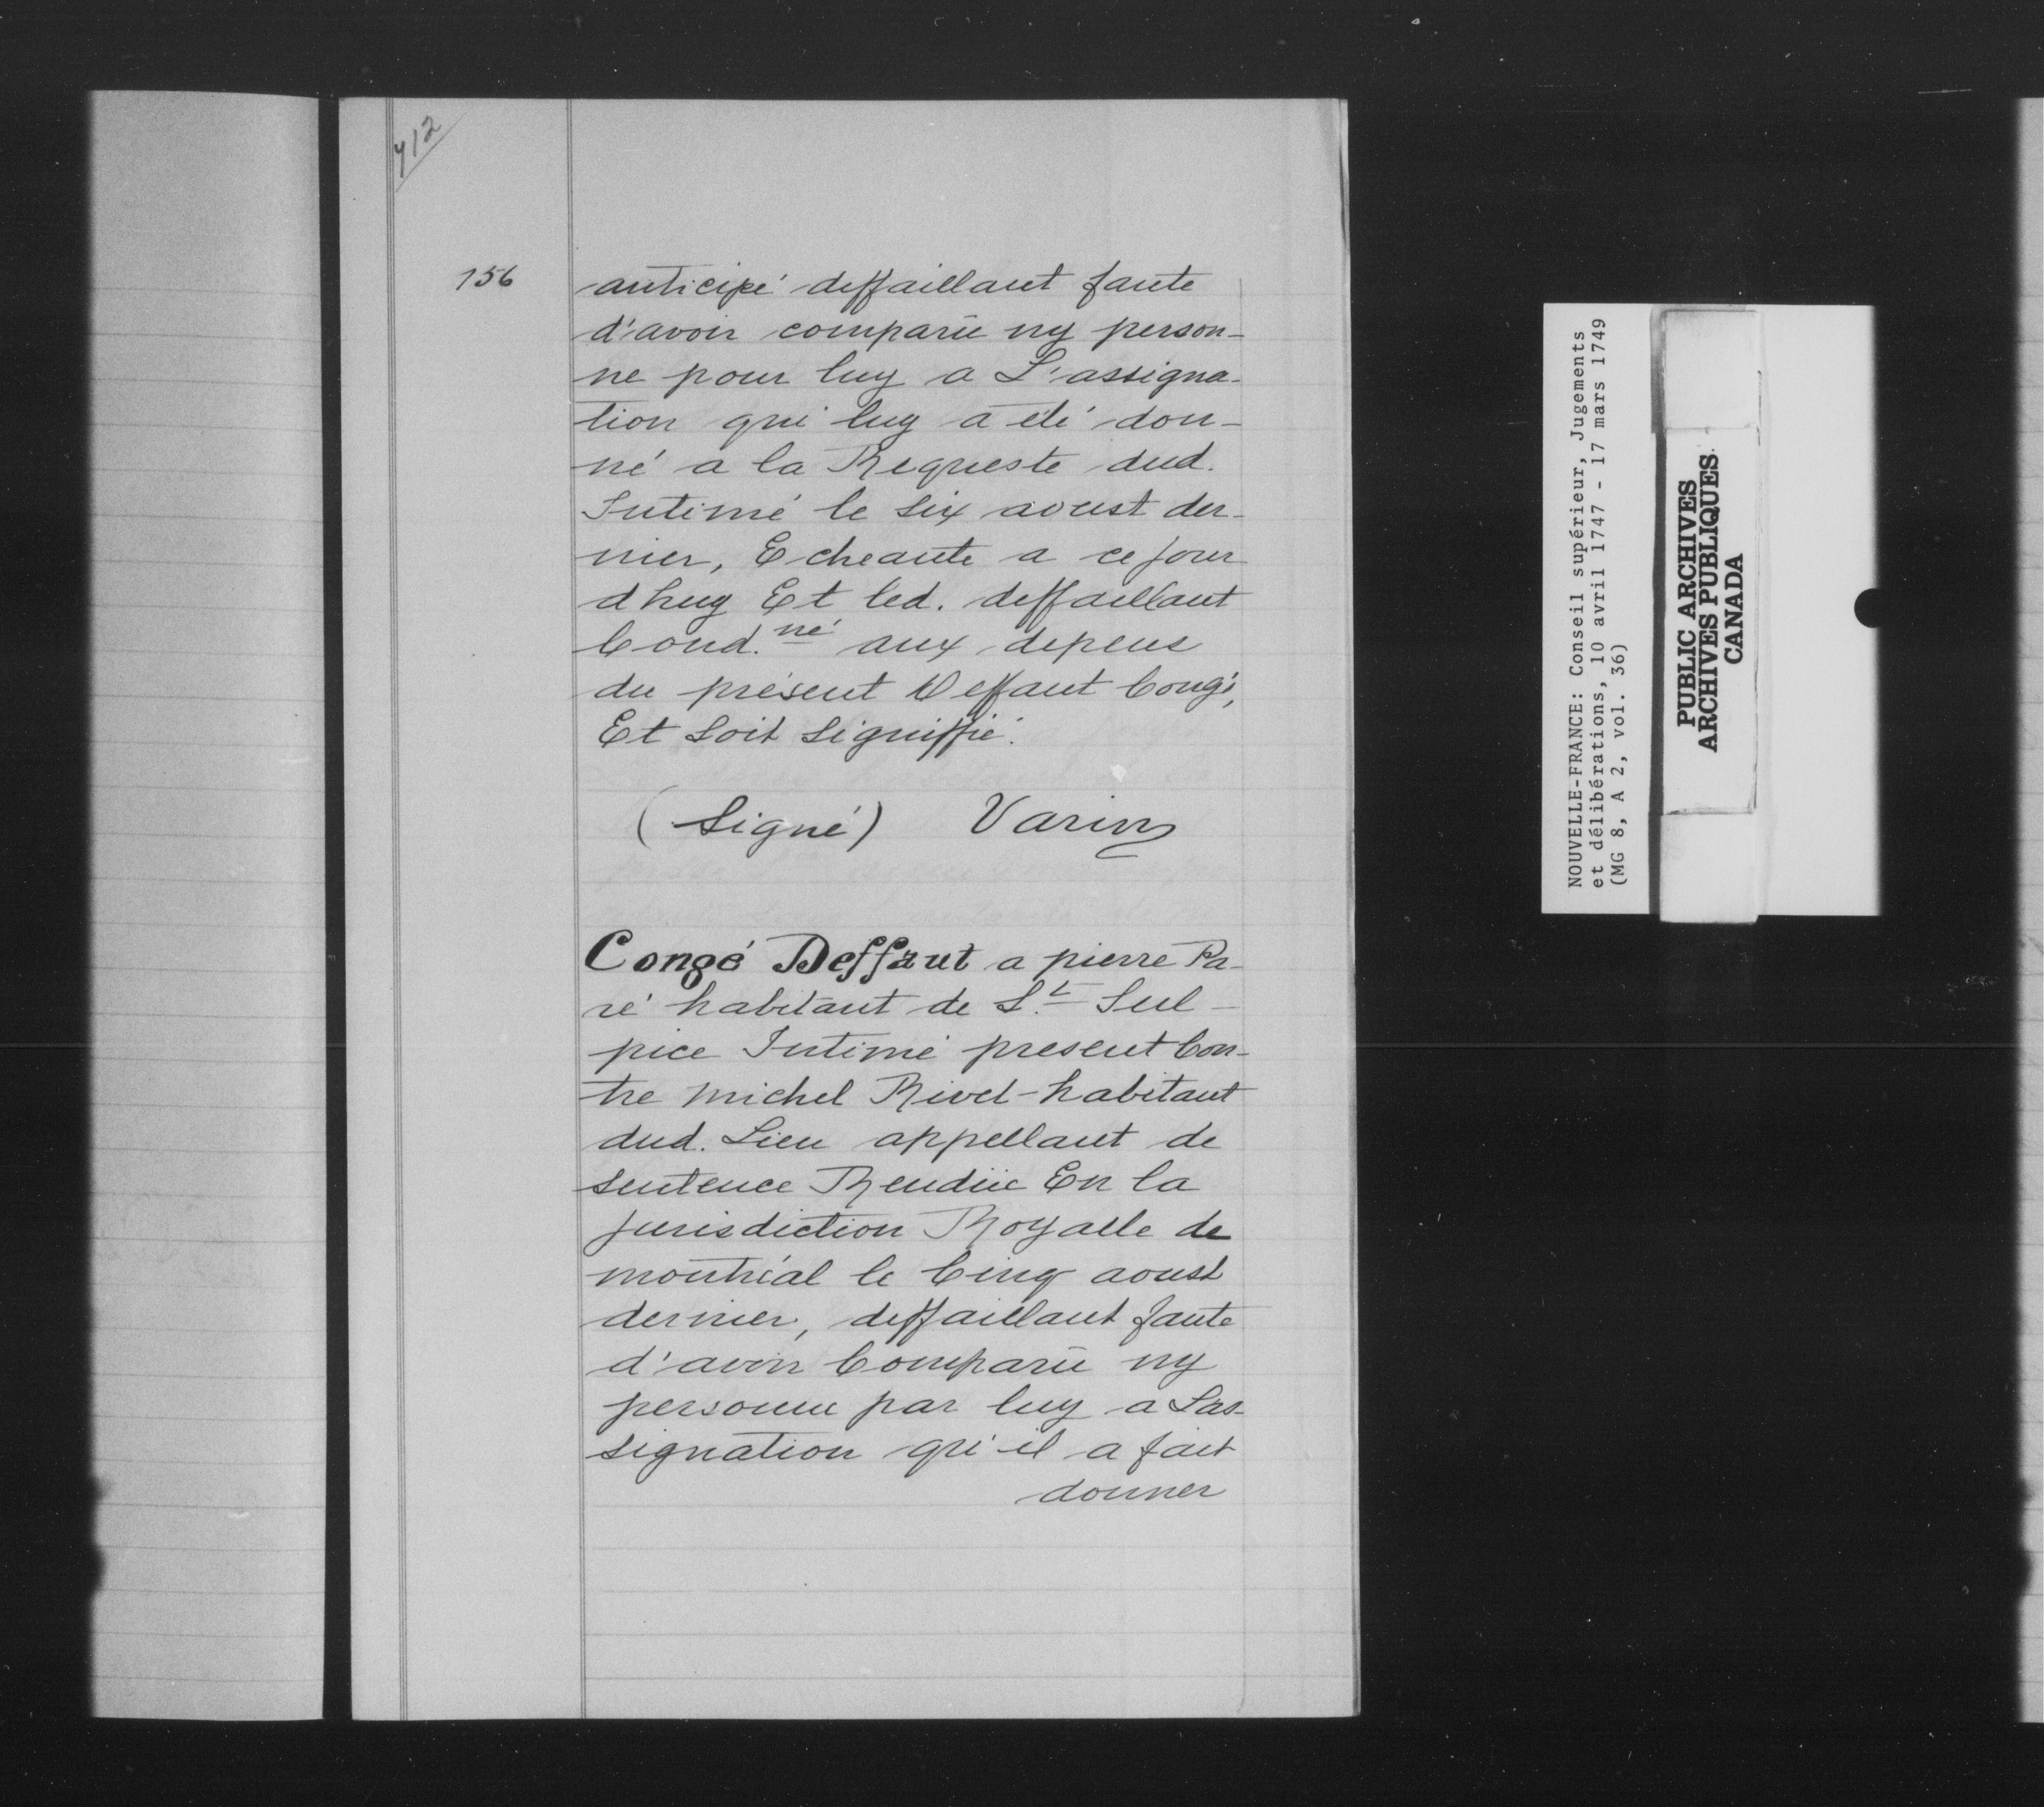 412
156
anticipé deffaillant faute
d'avoir comparü ny person-
ne pour luy a L'assigna-
tion qui luy a été don-
né a la Requeste dud.
Intimé le six aoust der-
nier, Echeante a ce jour
dhuy Et led. deffaillant
Cond.né aux depens
du présent Deffaut Congé,
Et soit signiffié.
(Signé) Varin
Congé Deffaut a pierre Pa-
ré habitant de St. Sul-
pice Intimé present Con-
tre Michel Rivet habitant
dud. Lieu appellant de
sentence Rendüe En la
jurisdiction Royalle de
montréal le Cinq aoust
dernier, deffaillant faute
d'avoir Comparü ny
personne par luy a Las-
signation qu'il a fait
donner
NOUVELLE-FRANCE: Conseil supérieur, Jugements
et délibérations, 10 avril 1747 - 17 mars 1749
(MG 8, A 2, vol. 36)
PUBLIC ARCHIVES
ARCHIVES PUBLIQUES
CANADA